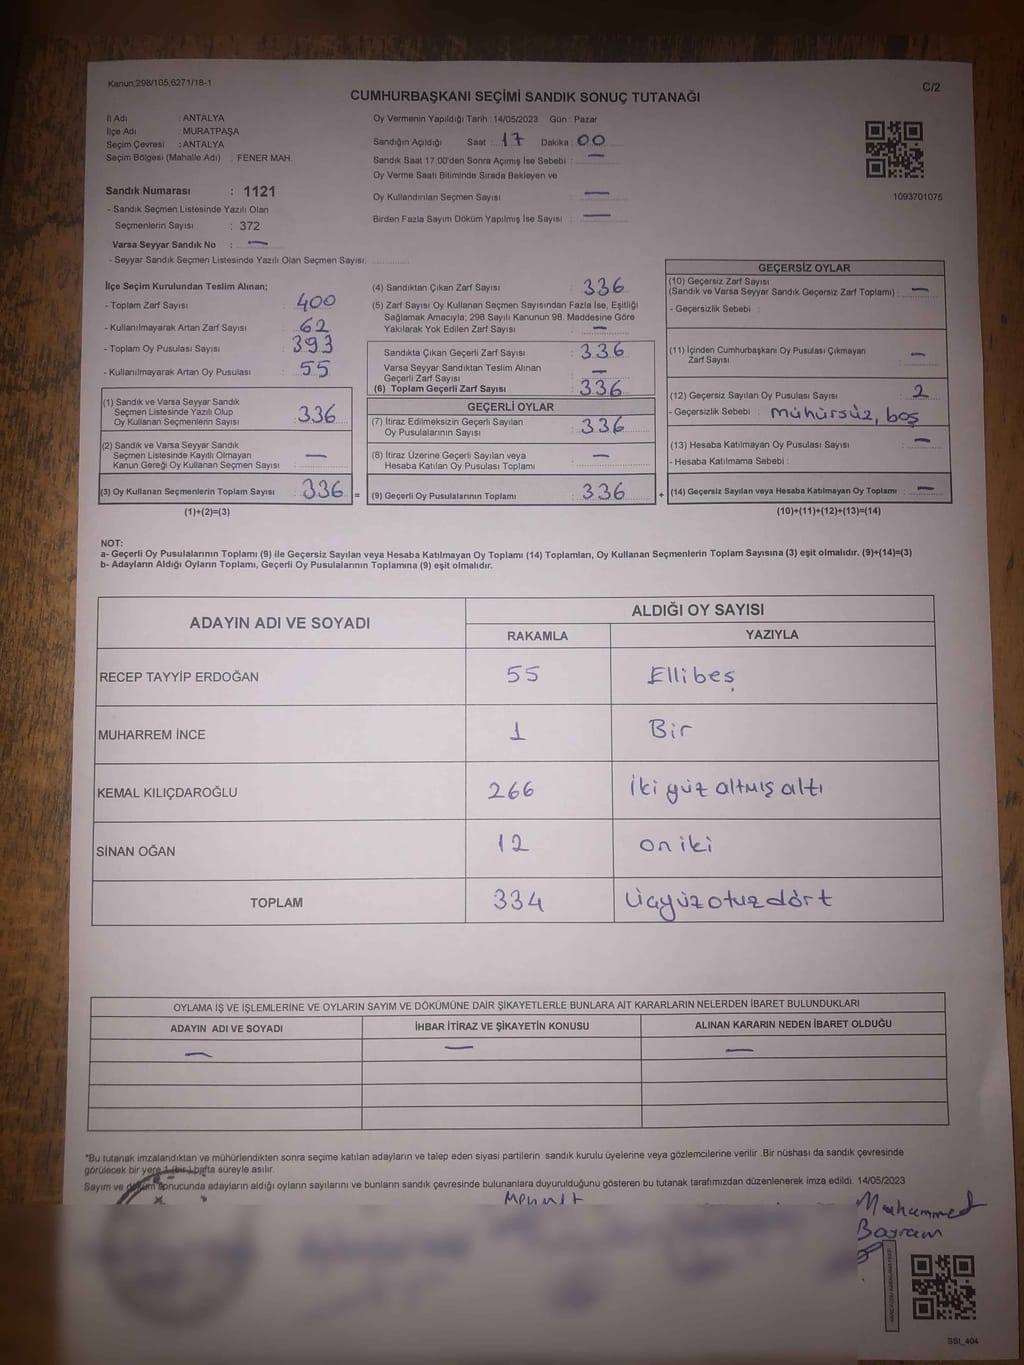 Kanun;298/105,6271/18-1
C/2
CUMHURBAŞKANI SEÇİMİ SANDIK SONUÇ TUTANAĞI
İl Adı : ANTALYA
İlçe Adı : MURATPAŞA
Seçim Çevresi : ANTALYA
Seçim Bölgesi (Mahalle Adı) : FENER MAH.
Oy Vermenin Yapıldığı Tarih : 14/05/2023 Gün : Pazar
Sandığın Açıldığı Saat : 17 Dakika : 00
Sandık Saat 17:00'den Sonra Açımış İse Sebebi : —
Oy Verme Saati Bitiminde Sırada Bekleyen ve
Oy Kullandırılan Seçmen Sayısı : —
Birden Fazla Sayım Döküm Yapılmış İse Sayısı : —
1093701075
Sandık Numarası : 1121
- Sandık Seçmen Listesinde Yazılı Olan
Seçmenlerin Sayısı : 372
Varsa Seyyar Sandık No : —
- Seyyar Sandık Seçmen Listesinde Yazılı Olan Seçmen Sayısı:
İlçe Seçim Kurulundan Teslim Alınan;
- Toplam Zarf Sayısı : 400
- Kullanılmayarak Artan Zarf Sayısı : 62
- Toplam Oy Pusulası Sayısı : 393
- Kullanılmayarak Artan Oy Pusulası : 55
(1) Sandık ve Varsa Seyyar Sandık
Seçmen Listesinde Yazılı Olup
Oy Kullanan Seçmenlerin Sayısı : 336
(2) Sandık ve Varsa Seyyar Sandık
Seçmen Listesinde Kayıtlı Olmayan
Kanun Gereği Oy Kullanan Seçmen Sayısı : —
(3) Oy Kullanan Seçmenlerin Toplam Sayısı : 336 =
(1)+(2)=(3)
(4) Sandıktan Çıkan Zarf Sayısı : 336
(5) Zarf Sayısı Oy Kullanan Seçmen Sayısından Fazla İse, Eşitliği
Sağlamak Amacıyla; 298 Sayılı Kanunun 98. Maddesine Göre
Yakılarak Yok Edilen Zarf Sayısı : —
Sandıkta Çıkan Geçerli Zarf Sayısı : 336
Varsa Seyyar Sandıktan Teslim Alınan
Geçerli Zarf Sayısı : —
(6) Toplam Geçerli Zarf Sayısı : 336
GEÇERLİ OYLAR
(7) İtiraz Edilmeksizin Geçerli Sayılan
Oy Pusulalarının Sayısı : 336
(8) İtiraz Üzerine Geçerli Sayılan veya
Hesaba Katılan Oy Pusulası Toplamı : —
(9) Geçerli Oy Pusulalarının Toplamı : 336 +
GEÇERSİZ OYLAR
(10) Geçersiz Zarf Sayısı
(Sandık ve Varsa Seyyar Sandık Geçersiz Zarf Toplamı) : —
- Geçersizlik Sebebi :
(11) İçinden Cumhurbaşkanı Oy Pusulası Çıkmayan
Zarf Sayısı : —
(12) Geçersiz Sayılan Oy Pusulası Sayısı : 2
- Geçersizlik Sebebi : mühürsüz, boş
(13) Hesaba Katılmayan Oy Pusulası Sayısı : —
- Hesaba Katılmama Sebebi :
(14) Geçersiz Sayılan veya Hesaba Katılmayan Oy Toplamı : —
(10)+(11)+(12)+(13)=(14)
NOT:
a- Geçerli Oy Pusulalarının Toplamı (9) ile Geçersiz Sayılan veya Hesaba Katılmayan Oy Toplamı (14) Toplamları, Oy Kullanan Seçmenlerin Toplam Sayısına (3) eşit olmalıdır. (9)+(14)=(3)
b- Adayların Aldığı Oyların Toplamı, Geçerli Oy Pusulalarının Toplamına (9) eşit olmalıdır.
ADAYIN ADI VE SOYADI
ALDIĞI OY SAYISI
RAKAMLA YAZIYLA
RECEP TAYYİP ERDOĞAN 55 Ellibeş
MUHARREM İNCE 1 Bir
KEMAL KILIÇDAROĞLU 266 iki yüz altmış altı
SİNAN OĞAN 12 on iki
TOPLAM 334 üçyüzotuzdört
OYLAMA İŞ VE İŞLEMLERİNE VE OYLARIN SAYIM VE DÖKÜMÜNE DAİR ŞİKAYETLERLE BUNLARA AİT KARARLARIN NELERDEN İBARET BULUNDUKLARI
ADAYIN ADI VE SOYADI İHBAR İTİRAZ VE ŞİKAYETİN KONUSU ALINAN KARARIN NEDEN İBARET OLDUĞU
— — —
*Bu tutanak imzalandıktan ve mühürlendikten sonra seçime katılan adayların ve talep eden siyasi partilerin sandık kurulu üyelerine veya gözlemcilerine verilir .Bir nüshası da sandık çevresinde
görülecek bir yere 1 (bir) hafta süreyle asılır.
Sayım ve döküm sonucunda adayların aldığı oyların sayılarını ve bunların sandık çevresinde bulunanlara duyurulduğunu gösteren bu tutanak tarafımızdan düzenlenerek imza edildi. 14/05/2023
Muhammed
Bayram
SSI_404